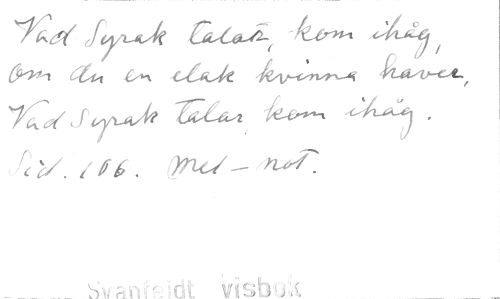 Vad Syrak talar, kom ihåg,
om du en elak kvinna haver,
Vad Syrak talar kom ihåg.
Sid. 106. Mel-not.
Svanfeldt visbok